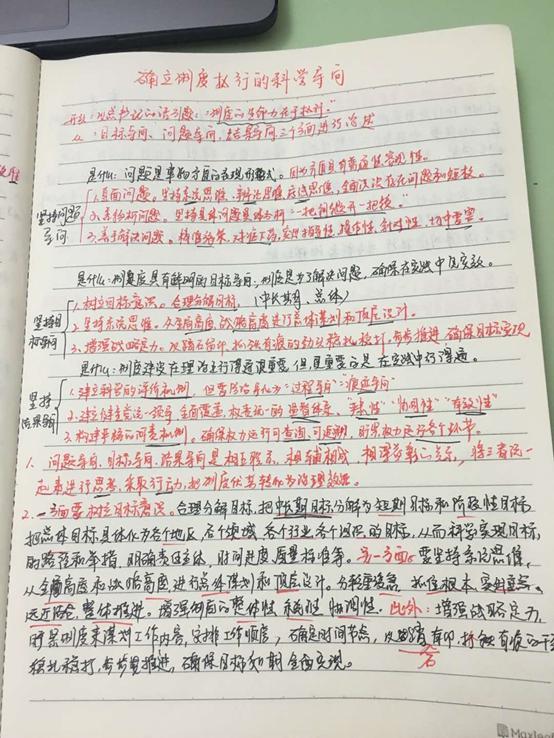 确立制度执行的科学导向
开头：习总书记的话引题："制度的生命力在于执行。"
从：目标导向、问题导向、结果导向三个方面进行论述
是什么：问题是事物矛盾的表现形式。因为矛盾具有普遍性客观性。
坚持问题导向
1.直面问题。坚持系统思维、辩证思维、底线思维，全面认识存在问题和短板。
2.分析问题。坚持具体问题具体分析"一把钥匙开一把锁"。
3.善于解决问题。精准施策，对症下药，突出操作性，针对性，切中要害
是什么：制度具有鲜明的目标导向，制度是为了解决问题，确保在实践中见实效。
坚持目标导向
1.树立目标意识。合理分解目标，（中长期、总体）
2.坚持系统思维。从全局高度、战略高度进行总体谋划和顶层设计。
3.增强战略定力。以踏石留印、抓铁有痕的劲头稳扎稳打，有步推进，确保目标实现
是什么：制度建设在理论上行得通很重要，但更重要的是在实践中行得通。
坚持结果导向
1.建立科学的评价机制。但要防治身化为"过程导向""痕迹导向"
2.建立健全党统一指导、全面覆盖、权责统一的监督体系。"权性""协同性""有效性"
3.构建严格的问责机制。确保权力运行可查询、可追溯，贯穿权力运行各个环节。
1. 问题导向、目标导向、结果导向是相互联系，相辅相成，相得益彰的关系，将三者统一
起来进行思考，采取行动，把制度优势转化为治理效能。
2.一方面要树立目标意识。合理分解目标，把中长期目标分解为短期目标和阶段性目标，
把总体目标具体化为各个地区、各个领域、各个行业、各个组织的目标，从而科学实现目标，
的路径和举措，明确责任主体，时间进度，质量标准等。另一方面，要坚持系统思维，
从全局高度和战略高度进行总体谋划和顶层设计。分轻重缓急，抓住根本，突出重点，
远近结合，整体推进。增强制度的整体性、系统性、协调性。此外：增强战略定力，
明晰制度来谋划工作内容，安排工作顺序，确定时间节点，以踏石有印，抓铁有痕的干劲
稳扎稳打，有步骤推进，确保目标如期全面实现。
Maxleaf